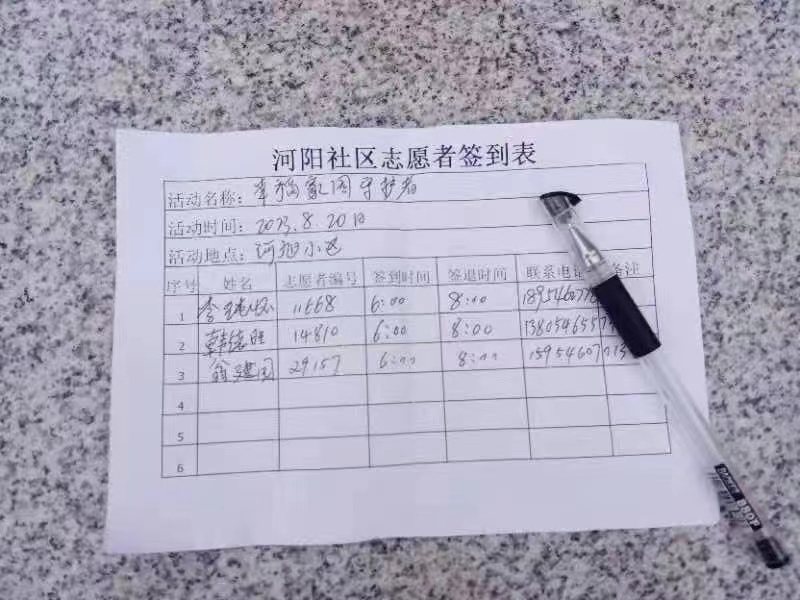 河阳社区志愿者签到表
活动名称: 幸福家园守护者
活动时间: 2023.8.20日
活动地点: 河阳小区
序号 姓名 志愿者编号 签到时间 签退时间 联系电话 备注
1 李 11668 6:00 8:00
2 韩德胜 14810 6:00 8:00
3 建国 29157 6:00 8:00
4
5
6